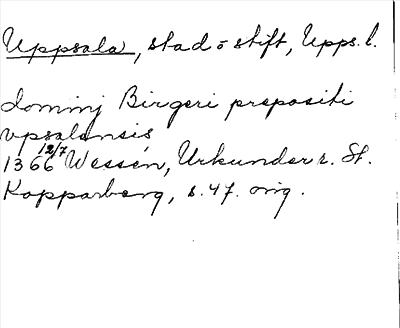 Uppsala, stad o stift, Upps. l.
dominj Birgeri prepositi
vpsalensis
1366 12/7 Wessén, Urkunder r. St.
Kopparberg, s. 47. orig.